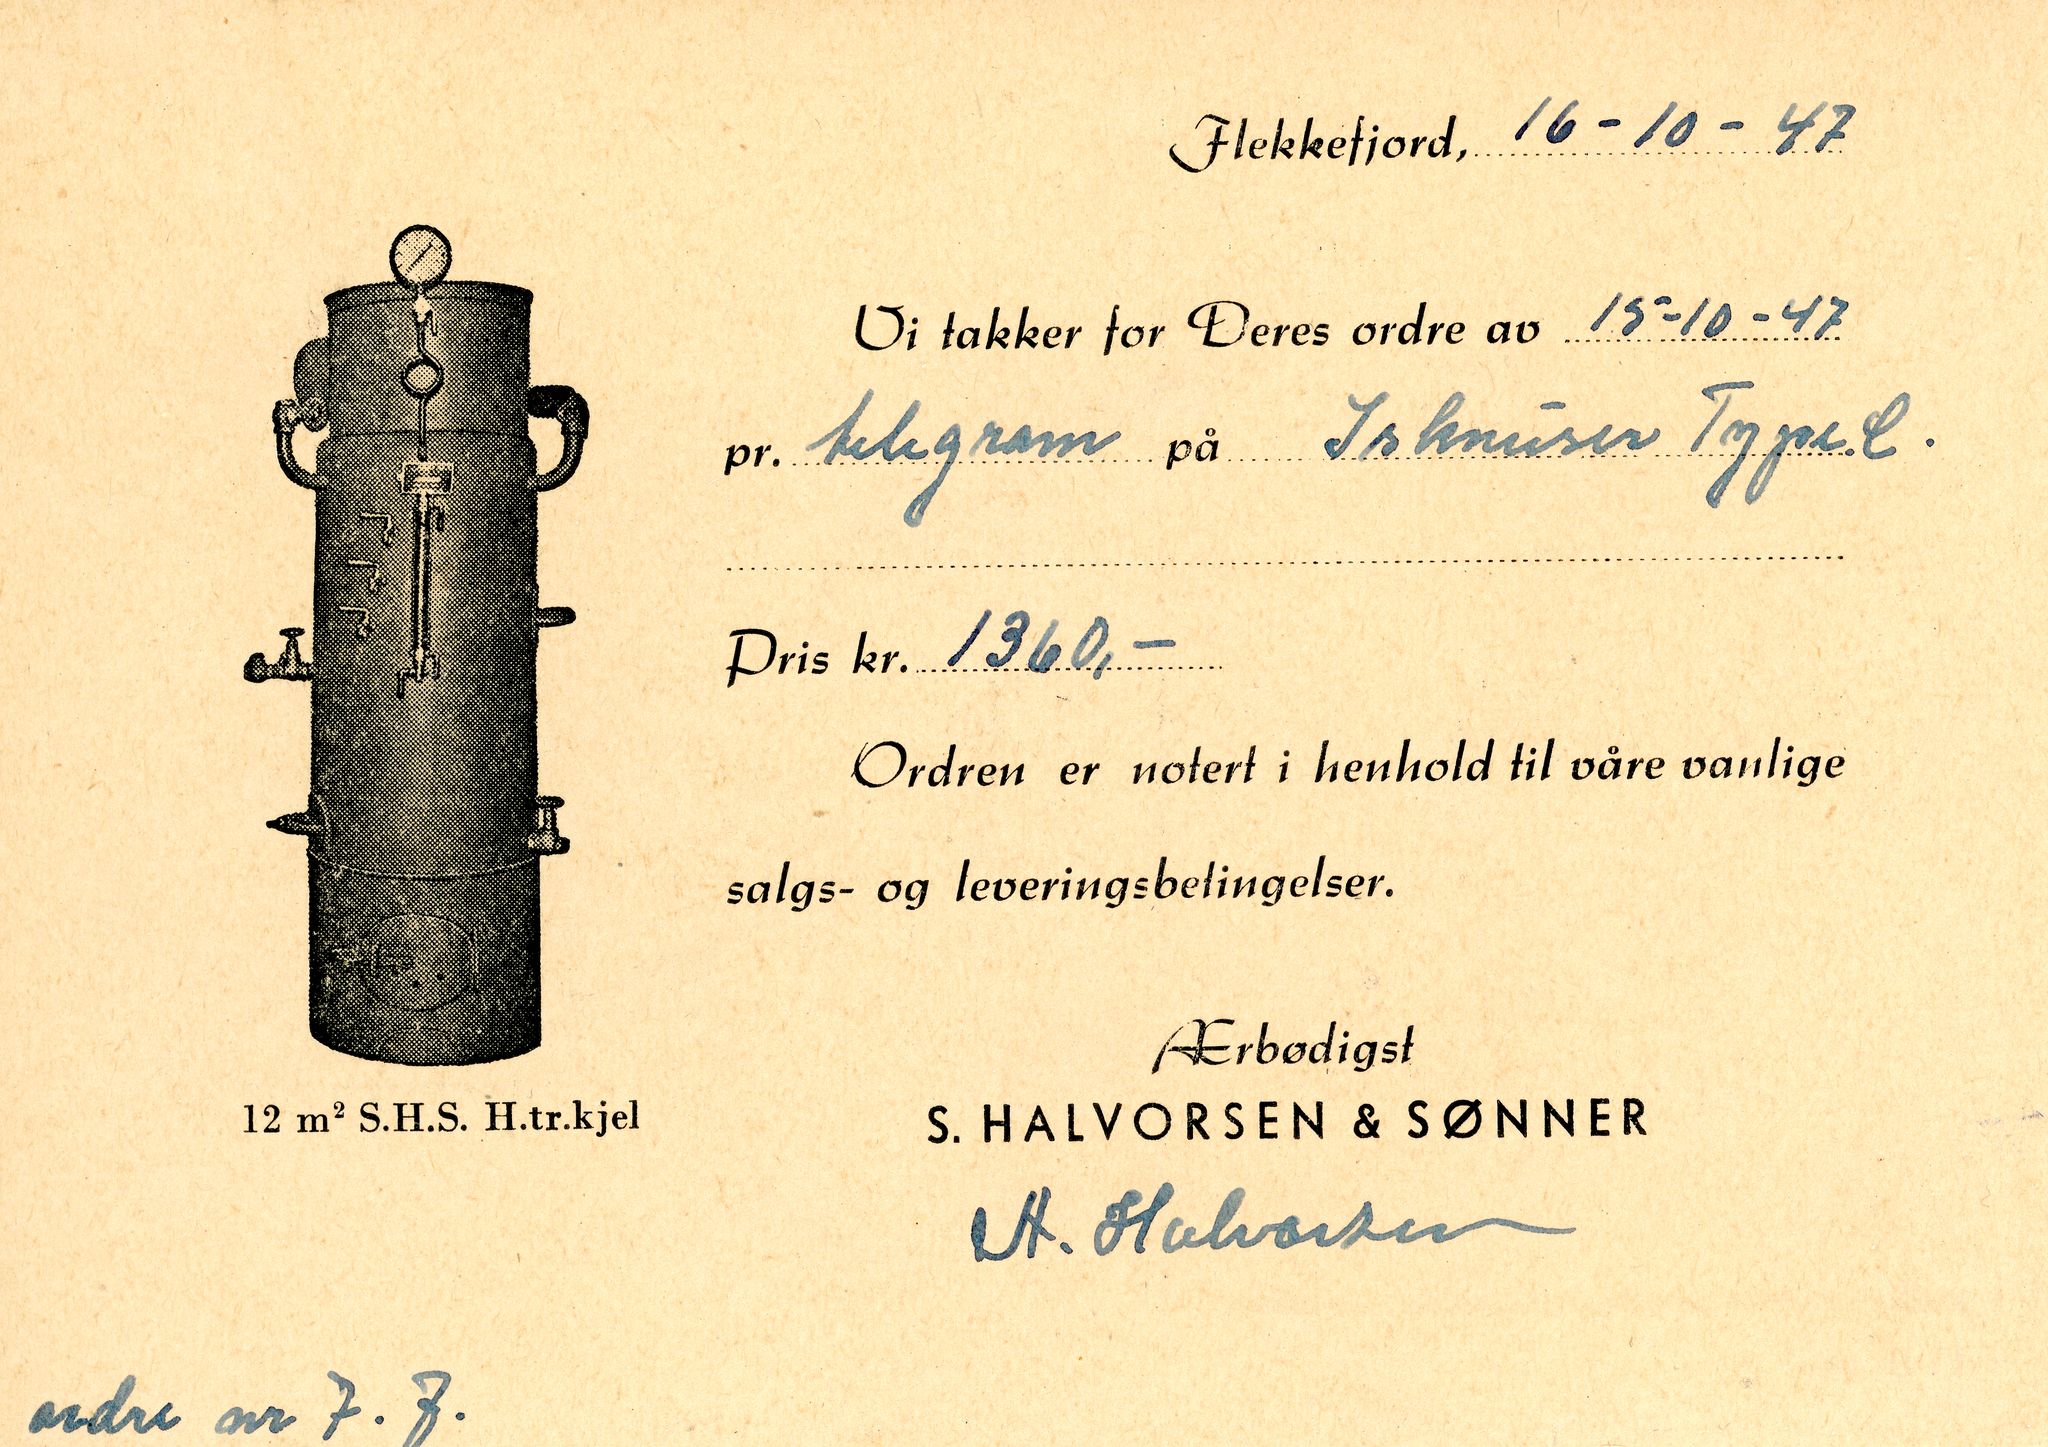 Flekkefjord, 16-10-47
Vi takker for Deres ordre av 15-10-47
pr. telegram på Isknuser Type C.
Pris kr. 1360,-
Ordren er notert i henhold til våre vanlige
salgs- og leveringsbetingelser.
Ærbødigst
S. HALVORSEN & SØNNER
H. Halvorsen
12 m² S.H.S. H.tr.kjel
ordre nr 7. J.